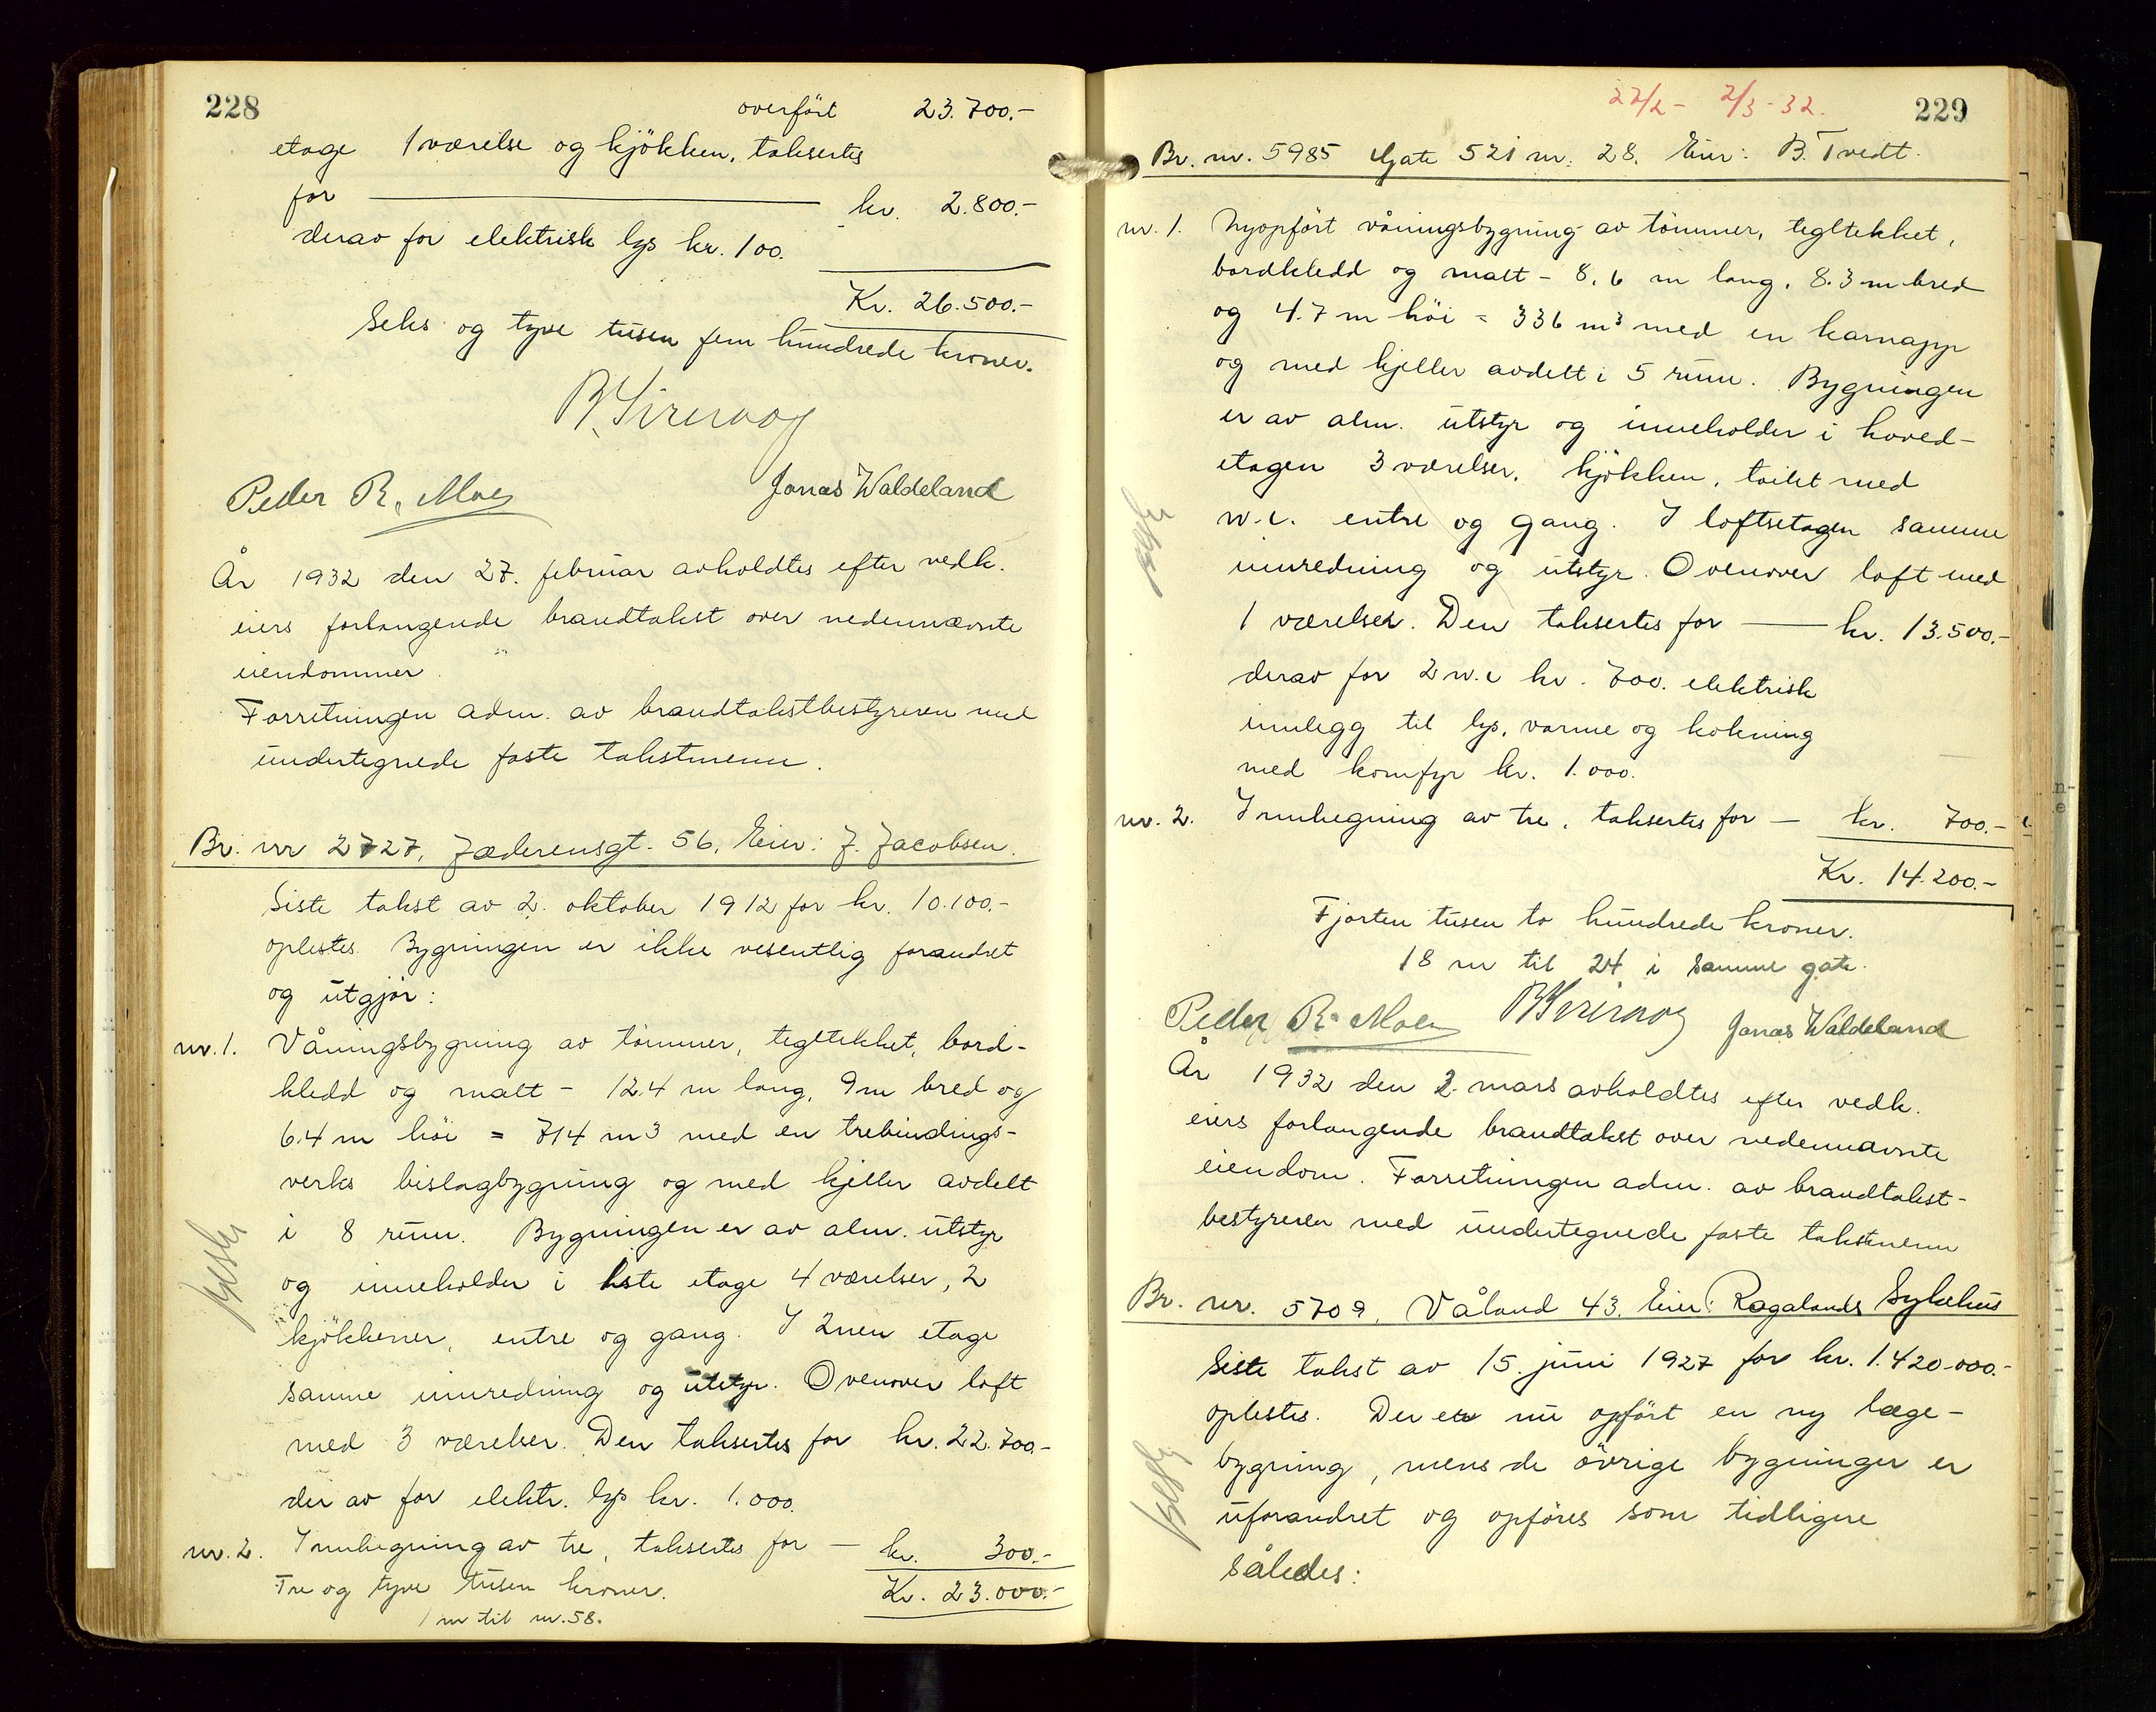 228
overført 23.700.-
etage 1 værelse og kjökken, taksertes
for kr. 2.800.-
derav for elektrisk lys kr. 100.
Kr. 26.500.-
Seks og tyve tusen fem hundrede kroner.
Peder R. Moe Jonas Waldeland
År 1932 den 27. februar avholdtes efter vedk.
eiers forlangende brandtakst over nedennævnte
eiendommer.
Forretningen adm. av brandtakstbestyreren med
undertegnede faste takstmenn.
Br. nr 2727, Jæderensgt. 56, Eier: J. Jacobsen.
Siste takst av 2. oktober 1912 for kr. 10.100.-
oplestes. Bygningen er ikke vesentlig forandret
og utgjör:
nr. 1. Våningsbygning av tömmer, tegltekket, bord-
kledd og malt - 12.4 m lang, 9 m bred og
6.4 m höi = 714 m3 med en trebindings-
verks bislagbygning og med kjeller avdelt
i 8 rum. Bygningen er av alm. utstyr
og inneholder i 1ste etage 4 værelser, 2
kjökkener, entre og gang. I 2nen etage
samme innredning og utstyr. Ovenover loft
med 3 værelser. Den taksertes for kr. 22.700.-
der av for elektr. lys kr. 1.000.
nr. 2. Innhegning av tre, taksertes for - kr. 300.-
Tre og tyve tusen kroner. Kr. 23.000.-
1 m til nr. 58.
22/2 - 2/3 - 32.
229
Br. nr. 5985 Gate 521 nr. 28. Eier: B. Tvedt.
nr. 1. Nyopfört våningsbygning av tömmer, tegltekket,
bordkledd og malt - 8,6 m lang, 8.3 m bred
og 4.7 m höi = 336 m3 med en karnapp
og med kjeller avdelt i 5 rum. Bygningen
er av alm. utstyr og inneholder i hoved-
etagen 3 værelser, kjökken, toilet med
w.c. entre og gang. I loftsetagen samme
innredning og utstyr. Ovenover loft med
1 værelser. Den taksertes for kr. 13.500.-
derav for 2 w.c kr. 700. elektrisk
innlegg til lys, varme og kokning
med komfyr kr. 1.000.
nr. 2. Innhegning av tre, taksertes for - kr. 700.-
Kr. 14.200.-
Fjorten tusen to hundrede kroner.
18 m til 24 i samme gate.
Peder R. Moe Jonas Waldeland
År 1932 den 2. mars avholdtes efter vedk.
eiers forlangende brandtakst over nedennævnte
eiendom. Forretningen adm. av brandtakst-
bestyreren med undertegnede faste takstmenn
Br. nr. 5709, Våland 43. Eier: Rogalands Sykehus
Siste takst av 15. juni 1927 for kr. 1.420.000.-
oplestes. Der er nu opfört en ny læge-
bygning, mens de övrige bygninger er
uforandret og opföres som tidligere
således: